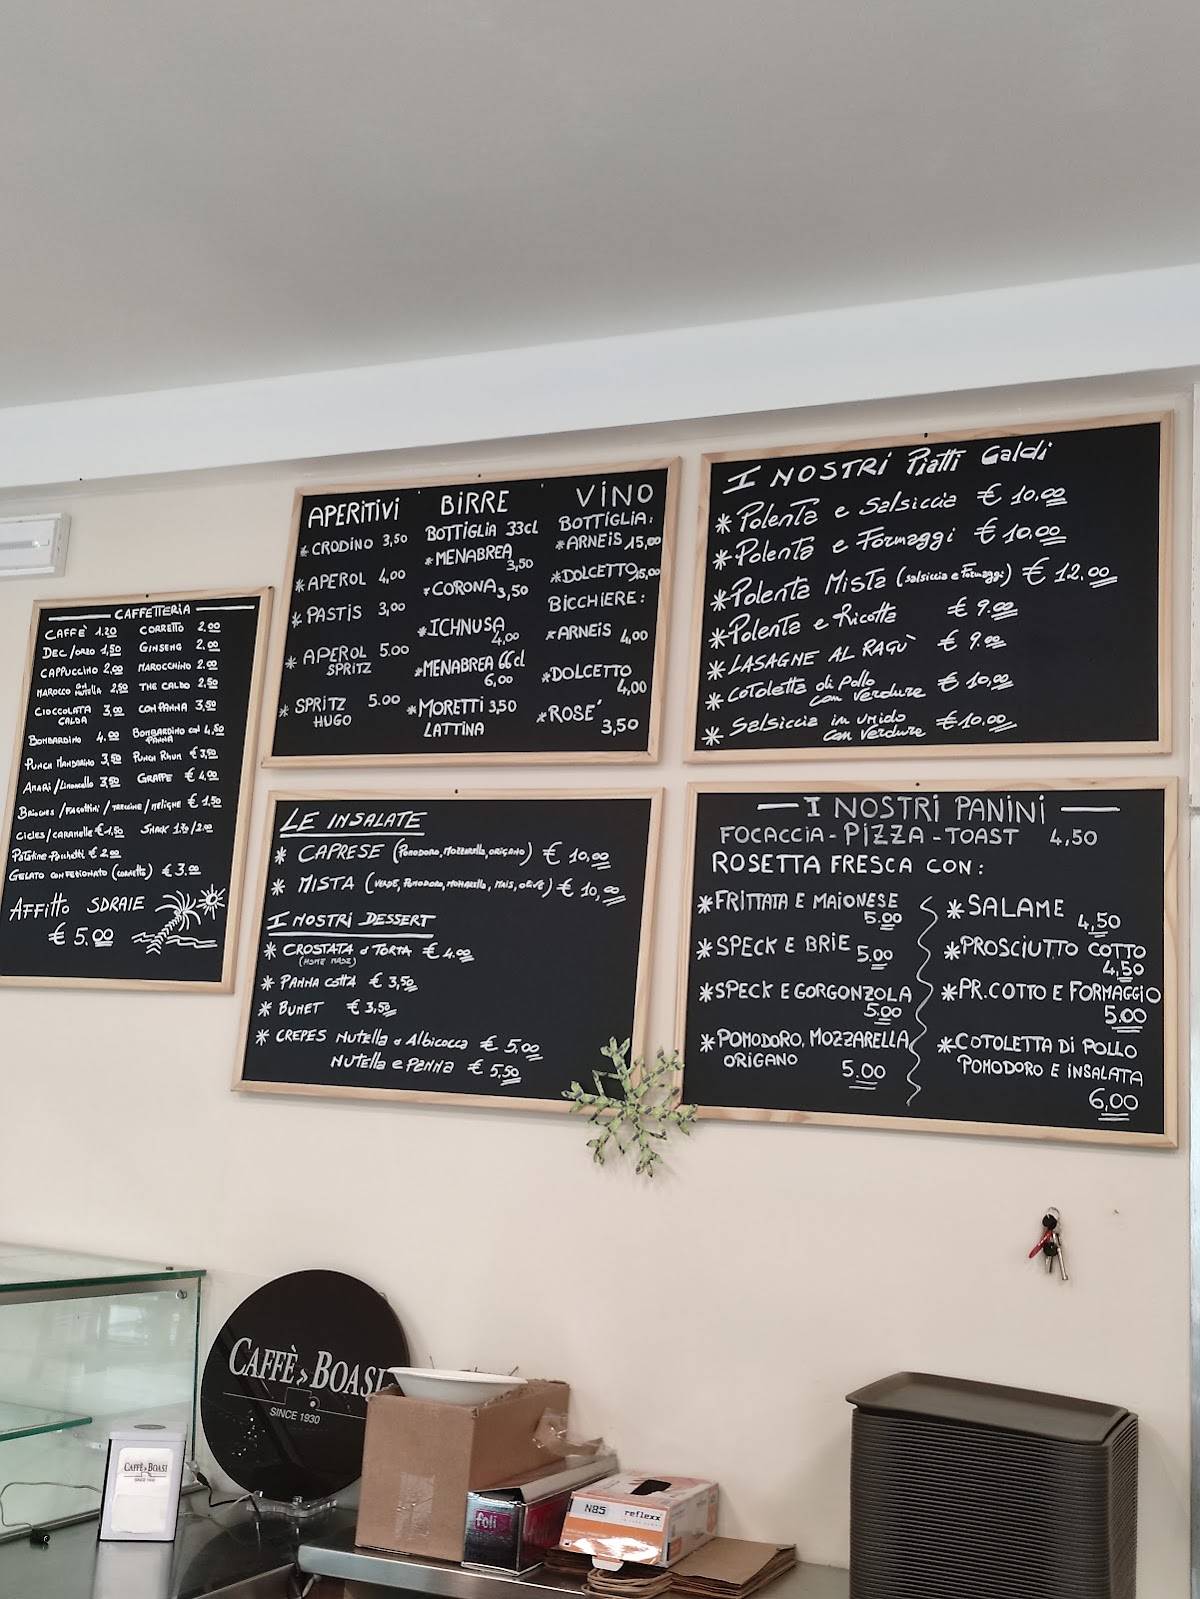 CAFFETTERIA
CAFFÈ 1.20 CORRETTO 2,00
DEC/ORZO 1,50 GINSENG 2,00
CAPPUCCINO 2,00 MAROCCHINO 2,00
MAROCCO CON NUTELLA 2,50 THE CALDO 2,50
CIOCCOLATA CALDA 3,00 CON PANNA 3,50
BOMBARDINO 4,00 BOMBARDINO CON PANNA 4,50
PUNCH MANDARINO 3,50 PUNCH RHUM € 3,50
AMARI/LIMONCELLO 3,50 GRAPPE € 4,00
BRIOCHES/FAGOTTINI/TRECCINE/MELIGHE € 1,50
CICLES/CARAMELLE € 1,50 SNACK 1.70/2.00
PATATINE PACCHETTI € 2,00
GELATO CONFEZIONATO (CORNETTO) € 3.00
AFFITTO SDRAIE
€ 5,00
APERITIVI
* CRODINO 3,50
* APEROL 4,00
* PASTIS 3,00
* APEROL SPRITZ 5.00
* SPRITZ HUGO 5.00
BIRRE
BOTTIGLIA 33cl
* MENABREA 3,50
* CORONA 3,50
* ICHNUSA 4,00
* MENABREA 66cl 6,00
* MORETTI 3,50
LATTINA
VINO
BOTTIGLIA:
* ARNEIS 15,00
* DOLCETTO 15,00
BICCHIERE:
* ARNEIS 4,00
* DOLCETTO 4,00
* ROSE' 3,50
I NOSTRI Piatti Caldi
* Polenta e Salsiccia € 10,00
* Polenta e Formaggi € 10,00
* Polenta Mista (salsiccia e Formaggi) € 12,00
* Polenta e Ricotta € 9.00
* LASAGNE AL RAGÙ € 9.00
* Cotoletta di Pollo con verdure € 10,00
* Salsiccia in umido con verdure € 10,00
LE INSALATE
* CAPRESE (POMODORO, MOZZARELLA, ORIGANO) € 10,00
* MISTA (VERDE, POMODORO, MOZZARELLA, MAIS, OLIVE) € 10,00
I NOSTRI DESSERT
* CROSTATA o TORTA € 4.00
(HOME MADE)
* PANNA COTTA € 3,50
* BUNET € 3,50
* CREPES NUTELLA o Albicocca € 5,00
NUTELLA e PANNA € 5,50
I NOSTRI PANINI
FOCACCIA - PIZZA - TOAST 4,50
ROSETTA FRESCA CON:
* FRITTATA E MAIONESE 5.00
* SPECK E BRIE 5.00
* SPECK E GORGONZOLA 5.00
* POMODORO, MOZZARELLA, ORIGANO 5.00
* SALAME 4,50
* PROSCIUTTO COTTO 4,50
* PR. COTTO E FORMAGGIO 5.00
* COTOLETTA DI POLLO
POMODORO E INSALATA
6,00
CAFFÈ BOASI
SINCE 1930
CAFFÈ BOASI
SINCE 1930
foli
N85
reflexx